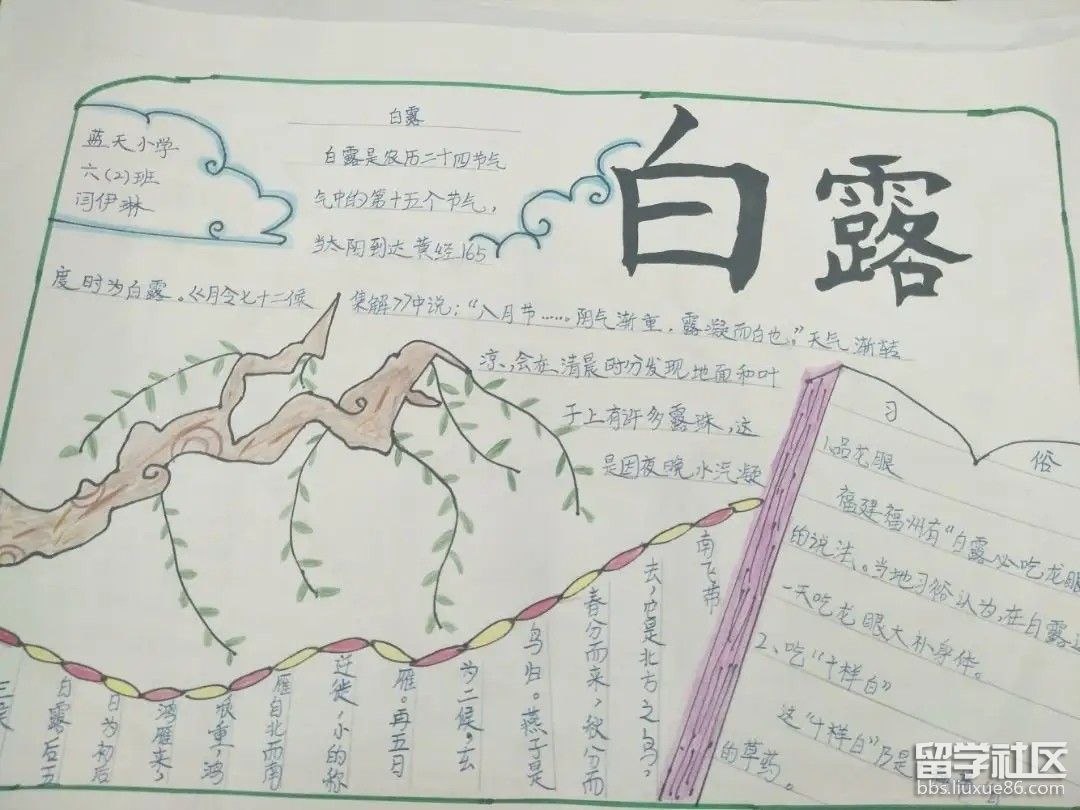 白露
蓝天小学
六(2)班
闫伊琳
白露
白露是农历二十四节气
气中的第十五个节气，
当太阳到达黄经165
度时为白露。《月令七十二候
集解》中说：“八月节……阴气渐重，露凝而白也，”天气渐转
凉，会在清晨时分发现地面和叶
于上有许多露珠，这
是因夜晚水汽凝
三候
白露后五
日为初后
鸿雁来，
重，鸿
雁自北而南
迁徙，小的称
雁。再五日
为二候。玄
鸟归。燕子是
春分而来，秋分而
去，它是北方之鸟，
南飞带
习俗
1.品龙眼
福建福州有“白露必吃龙眼
的说法。当地习俗认为，在白露这
一天吃龙眼大补身体。
2、吃“十样白”
这“十样白”乃是
的草药。
留学社区
bbs.liuxue86.com